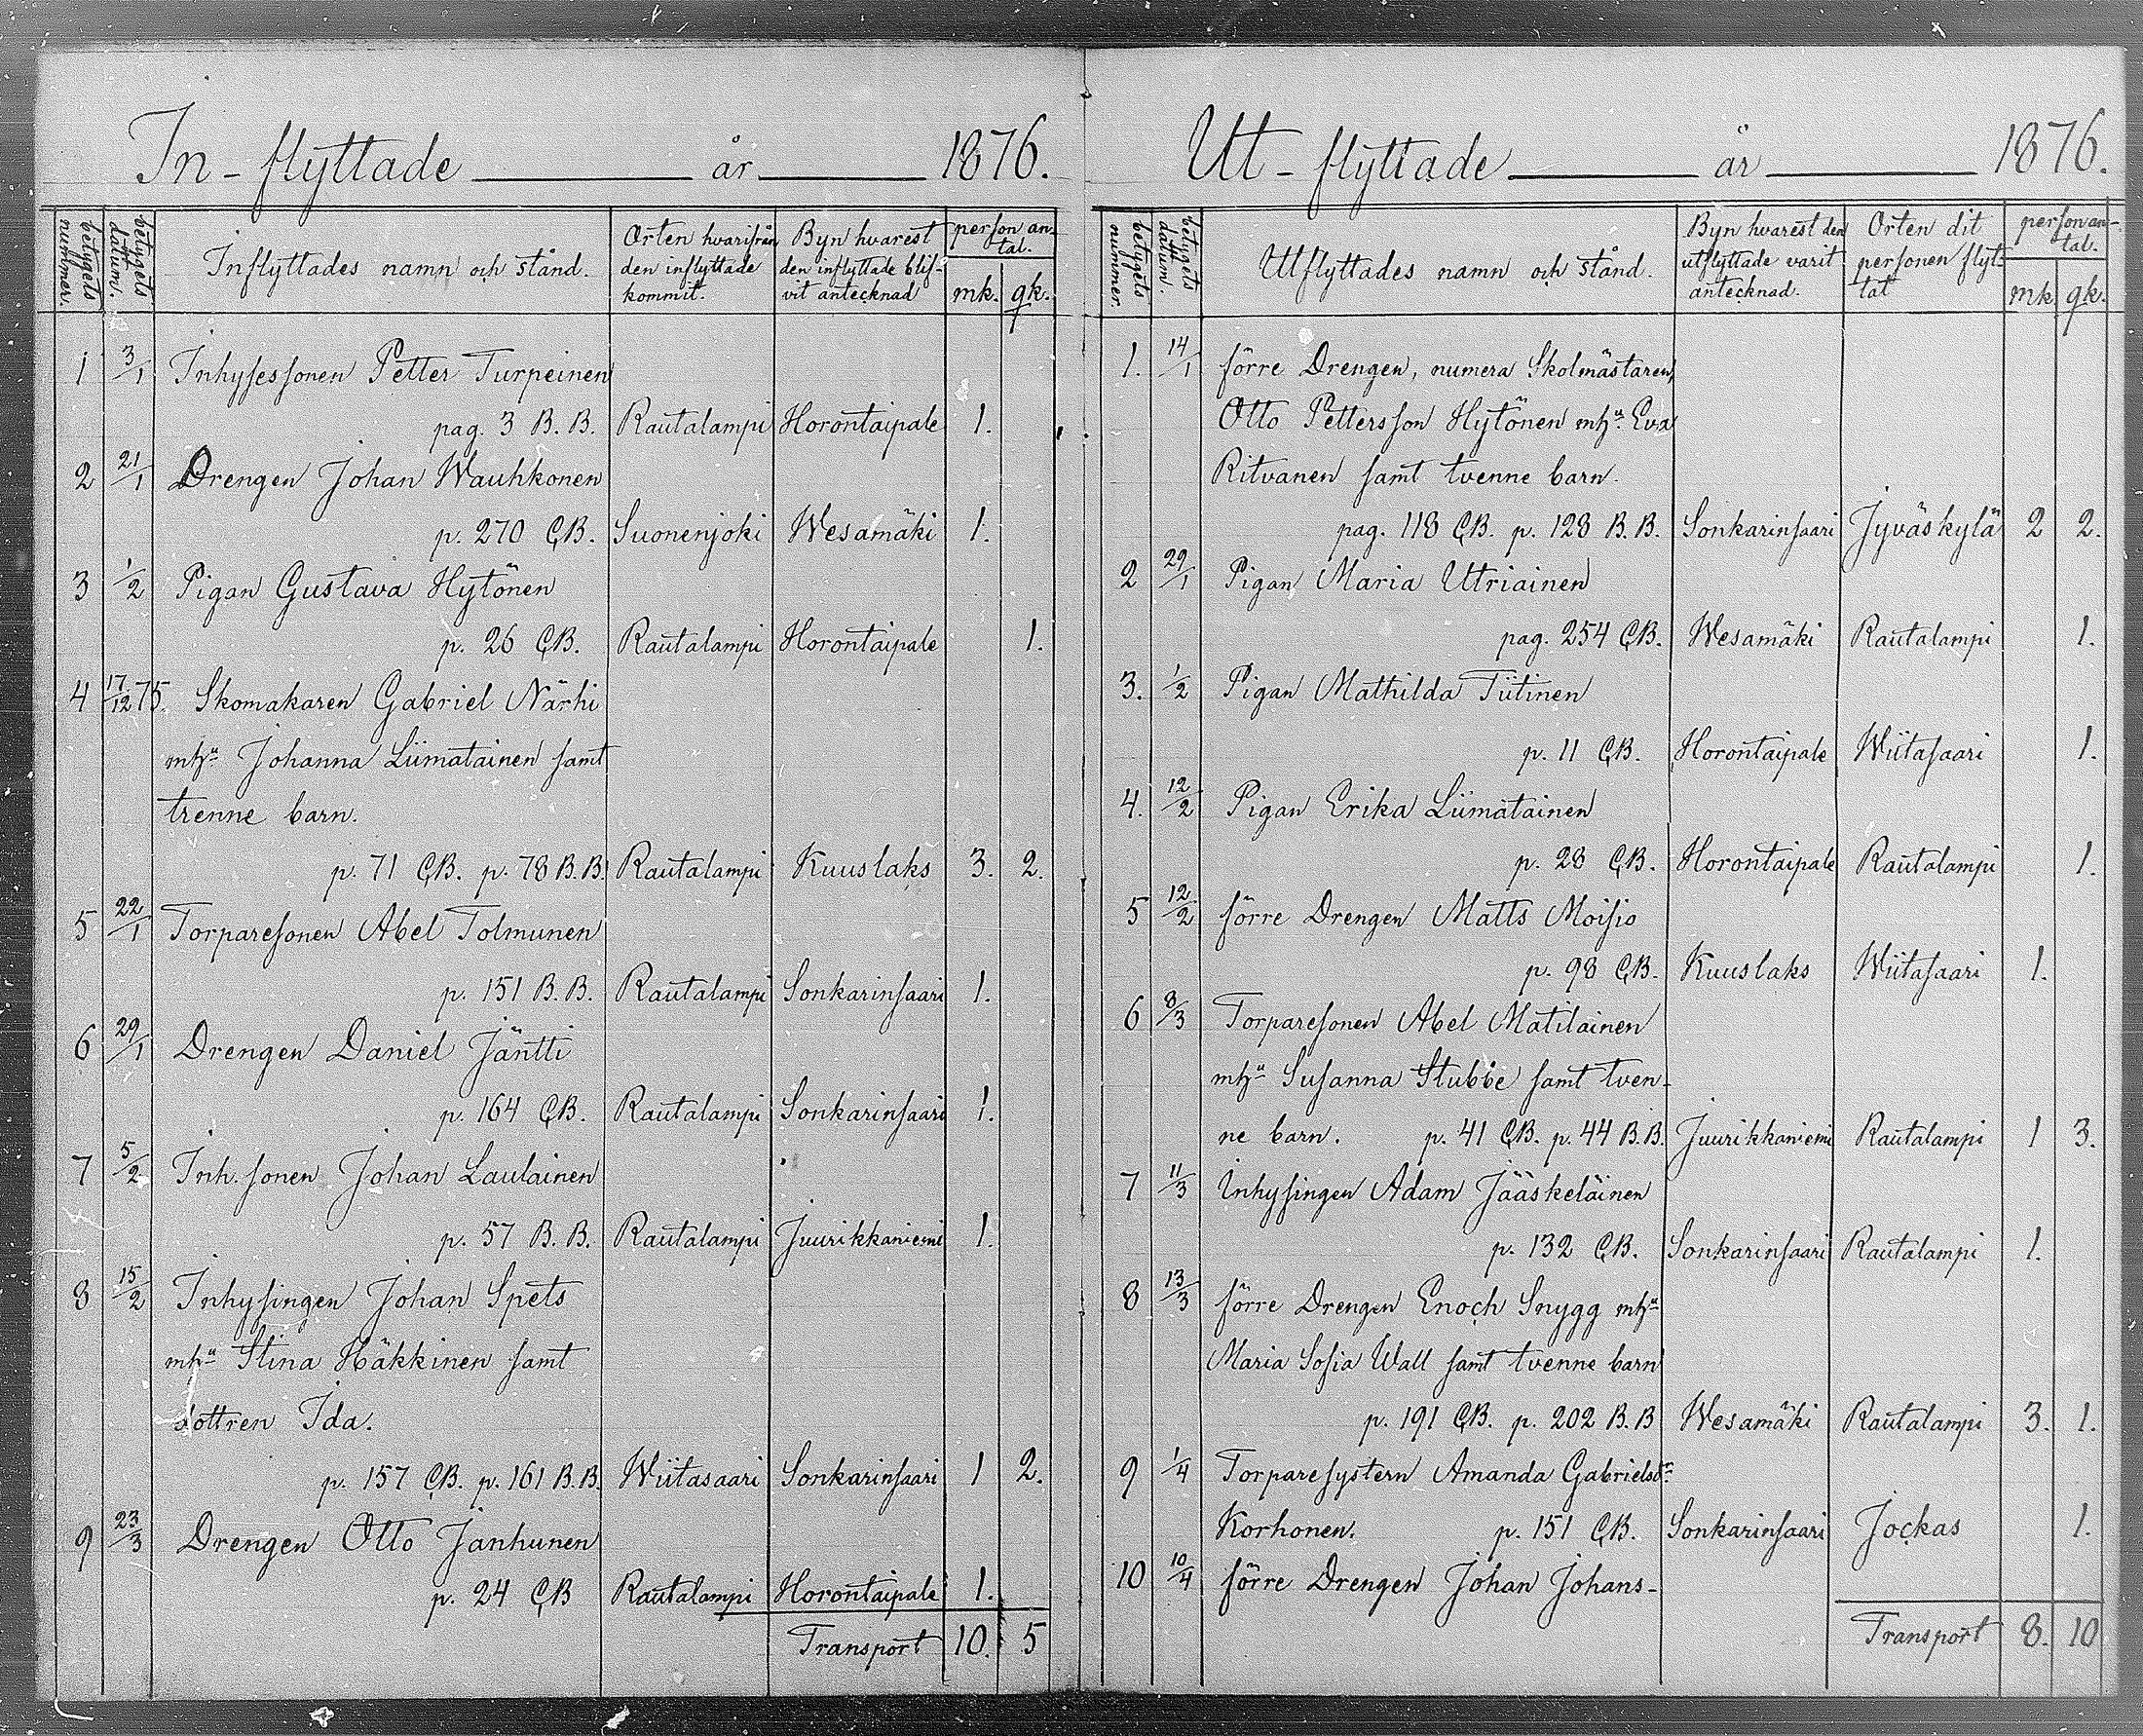 In-flyttade år 1876.
betygets nummer.
betygets datum.
Inflyttades namn och stånd.
Orten hvarifrån den inflyttade kommit.
Byn hvarest den inflyttade blifvit antecknad
person antal.
mk. qk.
1 3/1 Inhysessonen Petter Turpeinen
pag. 3 B.B. Rautalampi Horontaipale 1.
2 21/1 Drengen Johan Wauhkonen
p. 270 C.B. Suonenjoki Wesamäki 1.
3 1/2 Pigan Gustava Hytönen
p. 26 C.B. Rautalampi Horontaipale 1.
4 17/12 75. Skomakaren Gabriel Närhi
mhu Johanna Liimatainen samt
trenne barn.
p. 71 C.B. p. 78 B.B. Rautalampi Kuuslaks 3. 2.
5 22/1 Torparesonen Abel Tolmunen
p. 151 B.B. Rautalampi Sonkarinsaari 1.
6 29/1 Drengen Daniel Jäntti
p. 164 C.B. Rautalampi Sonkarinsaari 1.
7 5/2 Inh.sonen Johan Laulainen
p. 57 B.B. Rautalampi Juurikkaniemi 1.
8 15/2 Inhysingen Johan Spets
mhu Stina Häkkinen samt
dottren Ida.
p. 157 C.B. p. 161 B.B. Wiitasaari Sonkarinsaari 1 2.
9 23/3 Drengen Otto Janhunen
p. 24 C.B Rautalampi Horontaipale 1.
Transport 10. 5
Ut-flyttade år 1876.
betygets nummer.
betygets datum.
Utflyttades namn och stånd.
Byn hvarest den utflyttade varit antecknad.
Orten dit personen flyttat
person antal.
mk. qk.
1. 14/1 förre Drengen, numera Skolmästaren,
Otto Pettersson Hytönen mhu Eva
Ritvanen samt tvenne barn.
pag. 118 C.B. p. 128 B.B. Sonkarinsaari Jyväskylä 2 2.
2 29/1 Pigan Maria Utriainen
pag. 254 C.B. Wesamäki Rautalampi 1.
3. 1/2 Pigan Mathilda Tiitinen
p. 11 C.B. Horontaipale Wiitasaari 1.
4. 12/2 Pigan Erika Liimatainen
p. 28 C.B. Horontaipale Rautalampi 1.
5 12/2 förre Drengen Matts Moisio
p. 98 C.B. Kuuslaks Wiitasaari 1.
6 8/3 Torparesonen Abel Matilainen
mhu Susanna Stubbe samt tven-
ne barn. p. 41 C.B. p. 44 B.B. Juurikkaniemi Rautalampi 1 3.
7 11/3 Inhysingen Adam Jääskeläinen
p. 132 C.B. Sonkarinsaari Rautalampi 1.
8 13/3 förre Drengen Enoch Snygg mhu
Maria Sofia Wall samt tvenne barn
p. 191 C.B. p. 202 B.B Wesamäki Rautalampi 3. 1.
9 1/4 Torparesystern Amanda Gabrielsdr
Korhonen. p. 151 C.B. Sonkarinsaari Jockas 1.
10 10/4 förre Drengen Johan Johans-
Transport 8. 10